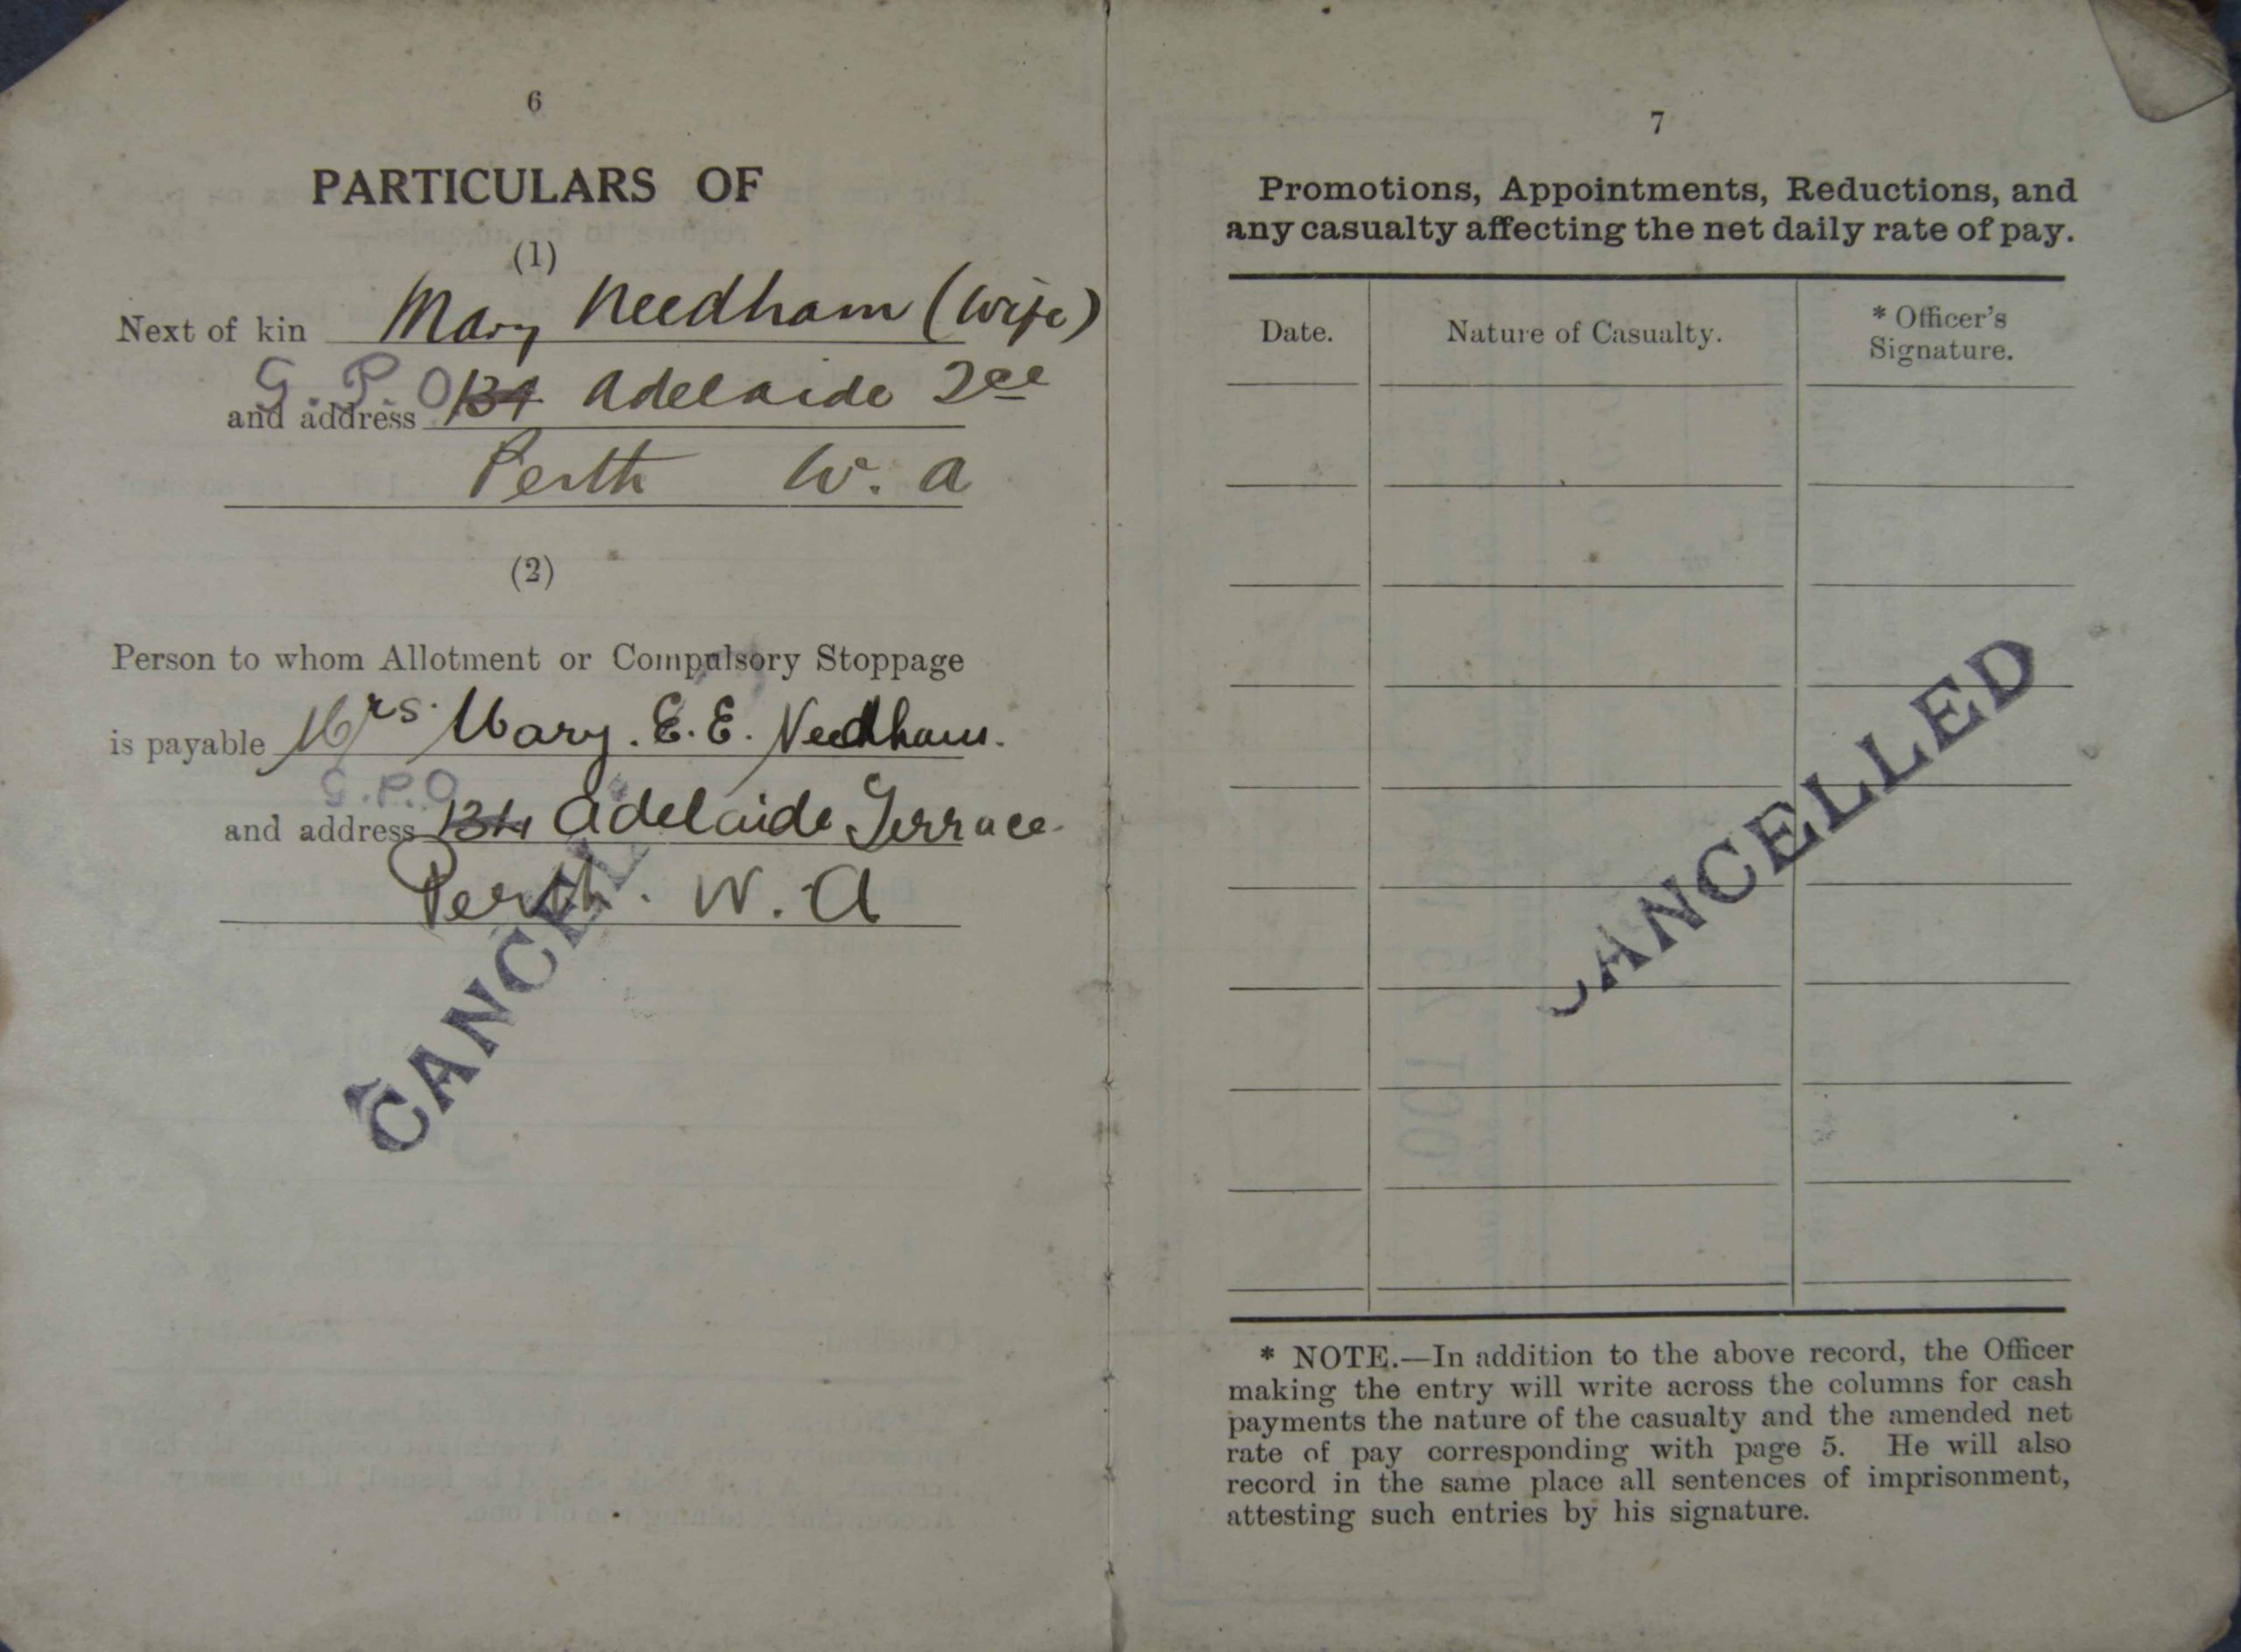 6
PARTICULARS OF
(1)
Next of kin Mary Needham (Wife)
G.P.O
and address 134 Adelaide Tce
Perth W. A
(2)
Person to whom Allotment or Compulsory Stoppage
is payable Mrs. Mary. E. E. Needham.
G.P.O
and address 134 Adelaide Terrace
Perth. W. A
CANCEL
7
Promotions, Appointments, Reductions, and
any casualty affecting the net daily rate of pay.
Date. Nature of Casualty. * Officer's
Signature.
CANCELLED
* NOTE.—In addition to the above record, the Officer
making the entry will write across the columns for cash
payments the nature of the casualty and the amended net
rate of pay corresponding with page 5. He will also
record in the same place all sentences of imprisonment,
attesting such entries by his signature.